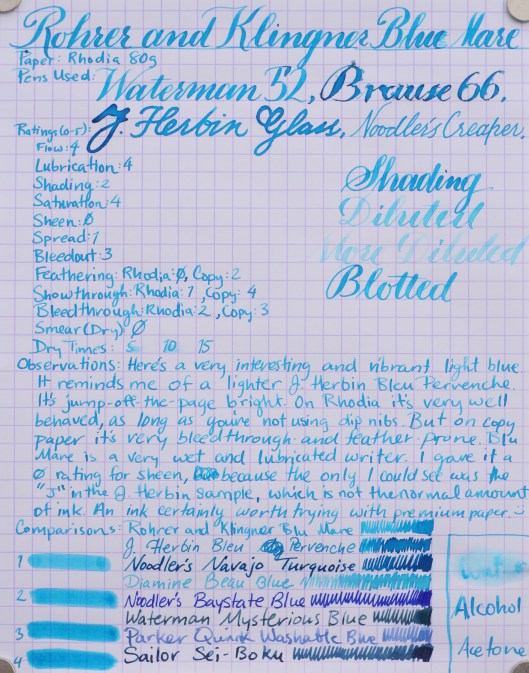 Rohrer and Klingner Blue Mare
Paper: Rhodia 80g
Pens Used: Waterman 52, Brause 66,
J. Herbin Glass, Noodler's Creaper,
Ratings (0-5):
Flow: 4
Lubrication: 4
Shading: 2
Saturation: 4
Sheen: Ø
Spread: 1
Bleedout: 3
Feathering: Rhodia: Ø, Copy: 2
Showthrough: Rhodia: 1, Copy: 4
Bleedthrough: Rhodia: 2, Copy: 3
Smear (Dry): Ø
Dry Times: 5 10 15
Shading
Diluted
More Diluted
Blotted
Observations: Here's a very interesting and vibrant light blue
It reminds me of a lighter J. Herbin Bleu Pervenche.
It's jump-off-the-page bright. On Rhodia it's very well
behaved, as long as you're not using dip nibs. But on copy
paper it's very bleedthrough and feather prone. Blu
Mare is a very wet and lubricated writer. I gave it a
Ø rating for sheen, because the only I could see was the
"J" in the J. Herbin sample, which is not the normal amount
of ink. An ink certainly worth trying with premium paper.
Comparisons: Rohrer and Klingner Blu Mare
J. Herbin Bleu Pervenche
Noodler's Navajo Turquoise
Diamine Beau Blue
Noodler's Baystate Blue
Waterman Mysterious Blue
Parker Quink Washable Blue
Sailor Sei-Boku
1
2
3
4
Water
Alcohol
Acetone